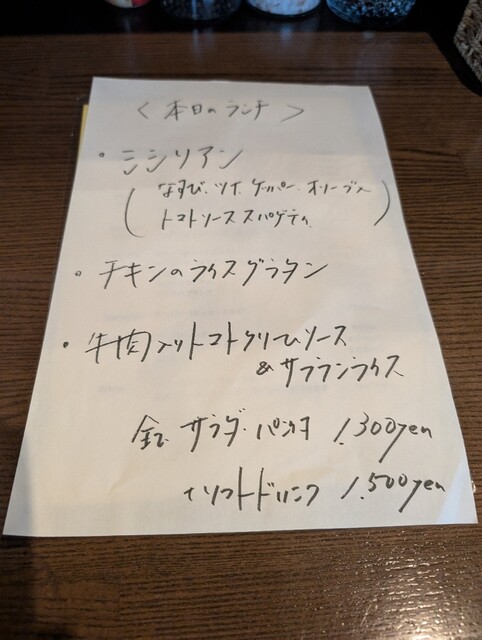 ＜本日のランチ＞
・シシリアン
(なすび、ツナ、ケッパー、オリーブ入
トマトソーススパゲティ)
・チキンのライスグラタン
・牛肉入りトマトクリームソース
&サフランライス
全て サラダ・パン付 1,300yen
+ソフトドリンク 1,500yen